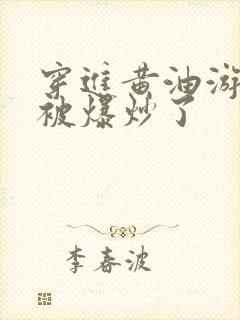 穿进黄油游
被爆炒了
李春波